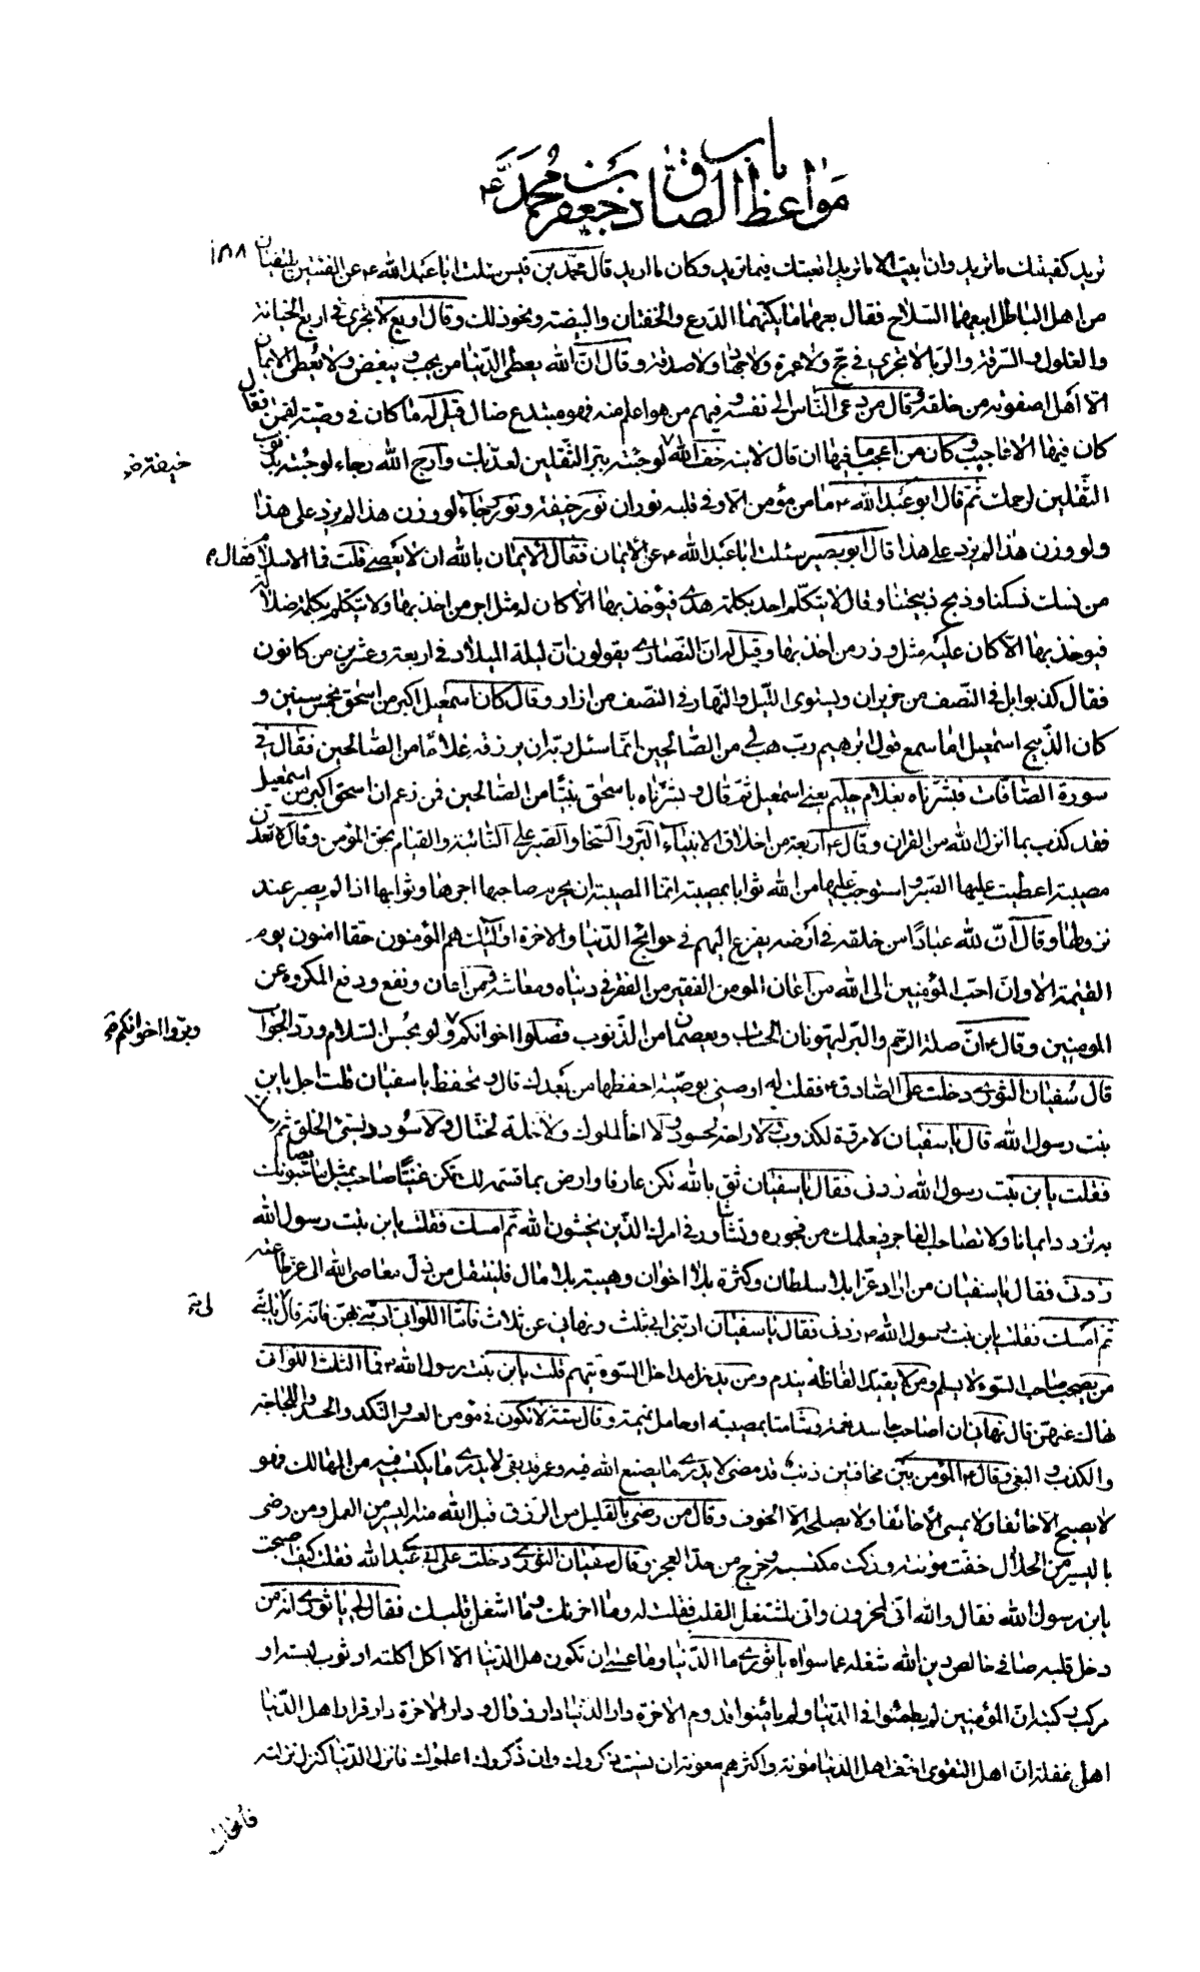 باب
مواعظ الصادق جعفر بن محمد ع
١٨٨
تريد كفيتك ما تريد وان ابيت الا ما تريد اتعبتك فيما تريد وكان ما اريد قال محمد بن قيس سئلت ابا عبد الله ع عن الفئتين يلتقيان
من اهل الباطل ابيعهما السلاح فقال بعهما ما يكنهما الدرع والخفتان والبيضة ونحو ذلك وقال اربع لا يجزى في اربع الخيانة
والغلول والسرقة والربا لا تجزى في حج ولا عمرة ولا جهاد ولا صدقة وقال ان الله يعطى الدنيا من يحب ويبغض ولا يعطى الايمان
الا اهل صفوته من خلقه وقال من دعى الناس الى نفسه وفيهم من هو اعلم منه فهو مبتدع ضال قيل له ما كان في وصية لقمن فقال
كان فيها الاعاجيب وكان من اعجب ما فيها ان قال لابنه خف الله لو جئته ببر الثقلين لعذبك وارج الله رجاء لو جئته بذنوب
خيفة خ
الثقلين لرحمك ثم قال ابو عبد الله ع ما من مؤمن الا وفي قلبه نوران نور خيفة ونور رجاء لو وزن هذا لم يزد على هذا
ولو وزن هذا لم يزد على هذا قال ابو بصير سئلت ابا عبد الله ع عن الايمان فقال الايمان بالله ان لا يعصى قلت فما الاسلام فقال
من نسك نسكنا وذبح ذبيحتنا وقال لا يتكلم احد بكلمة هدى فيؤخذ بها الا كان له مثل اجر من اخذ بها ولا يتكلم بكلمة ضلالة
فيوخذ بها الا كان عليه مثل وزر من اخذ بها وقيل له ان النصارى يقولون ان ليلة الميلاد في اربعة وعشرين من كانون
فقال كذبوا بل في النصف من حزيران ويستوى الليل والنهار في النصف من اذار وقال كان اسمعيل اكبر من اسحق بخمس سنين و
كان الذبيح اسمعيل اما سمع قول ابرهيم رب هب لي من الصالحين انما سئل ربه ان يرزقه غلاما من الصالحين فقال في
سورة الصافات فبشرناه بغلام حليم يعنى اسمعيل ثم قال وبشرناه باسحق نبيا من الصالحين فمن زعم ان اسحق اكبر من اسمعيل
فقد كذب بما انزل الله من القران وقال ع اربعة من اخلاق الانبياء البر والسخا والصبر على النائبة والقيام بحق المؤمن وقال لا تعدن
مصيبة اعطيت عليها الصبر واستوجبت عليها من الله ثوابا بمصيبة انما المصيبة ان يحرم صاحبها اجرها وثوابها اذا لم يصبر عند
نزولها وقال ان لله عبادا من خلقه في ارضه يفزع اليهم في حوائج الدنيا والاخرة اولئك هم المؤمنون حقا امنون يوم
القيمة الا وان احب المؤمنين الى الله من اعان المومن الفقير من الفقر في دنياه ومعاشه ومن اعان ونفع ودفع المكروه عن
المومنين وقال ع ان صلة الرحم والبر ليهونان الحساب ويعصمان من الذنوب فصلوا اخوانكم ولو بحسن السلام ورد الجواب
وبروا اخوانكم خ
قال سفيان الثورى دخلت على الصادق ع فقلت له اوصنى بوصية احفظها من بعدك قال وتحفظ يا سفيان قلت اجل يا ابن
بنت رسول الله قال يا سفيان لا مروة لكذوب ولا راحة لحسود ولا اخا لملوك ولا خلة لمختال ولا سؤدد لسيئ الخلق ثم امسك
فقلت يا بن بنت رسول الله زدنى فقال يا سفيان ثق بالله تكن عارفا وارض بما قسمه لك تكن غنيا صاحب بمثل ما يصاحبونك
به تزدد ايمانا ولا تصاحب الفاجر فيعلمك من فجوره وتشاور في امرك الذين يخشون الله ثم امسك فقلت يا بن بنت رسول الله
زدنى فقال يا سفيان من اراد عزا بلا سلطان وكثرة بلا اخوان وهيبة بلا مال فلينتقل من ذل معاصى الله الى عز طاعته
ثم امسك فقلت يا بن بنت رسول الله ع زدنى فقال يا سفيان ادبنى ابى بثلث ونهانى عن ثلاث فاما اللواتى ادبنى بهن فانه قال يا بنى
لى خ
من يصحب صاحب السوء لا يسلم ومن لا يقيد الفاظه يندم ومن يدخل مداخل السوء يتهم قلت يا بن بنت رسول الله ع فما الثلث اللواتى
نهاك عنهن قال نهانى ان اصاحب حاسد نعمة وشامتا بمصيبة او حامل نميمة وقال ستة لا تكون في مؤمن العسر والنكد والحسد واللجاجة
والكذب والبغى وقال ع المؤمن بين مخافتين ذنب قد مضى لا يدرى ما يصنع الله فيه وعمر قد بقى لا يدرى ما يكتسب فيه من المهالك فهو
لا يصبح الا خائفا ولا يمسى الا خائفا ولا يصلحه الا الخوف وقال من رضى بالقليل من الرزق قبل الله منه اليسير من العمل ومن رضى
باليسير من الحلال خفت مؤنته وزكت مكسبه وخرج من حد العجز وقال سفيان الثورى دخلت على ابى عبد الله فقلت كيف اصبحت
يا بن رسول الله فقال والله انى لمحزون وانى لمشتغل القلب فقلت له وما احزنك وما اشغل قلبك فقال لى يا ثورى انه من
دخل قلبه صافى خالص دين الله شغله عما سواه يا ثورى ما الدنيا وما عسى ان تكون هل الدنيا الا اكل اكلته او ثوب لبسته او
مركب ركبته ان المؤمنين لم يطمئنوا في الدنيا ولم يامنوا قدوم الاخرة دار الدنيا دار زوال ودار الاخرة دار قرار اهل الدنيا
اهل غفلة ان اهل التقوى اخف اهل الدنيا مؤنة واكثرهم معونة ان نسيت ذكروك وان ذكروك اعلموك فانزل الدنيا كمنزل نزلته
فارتحلت